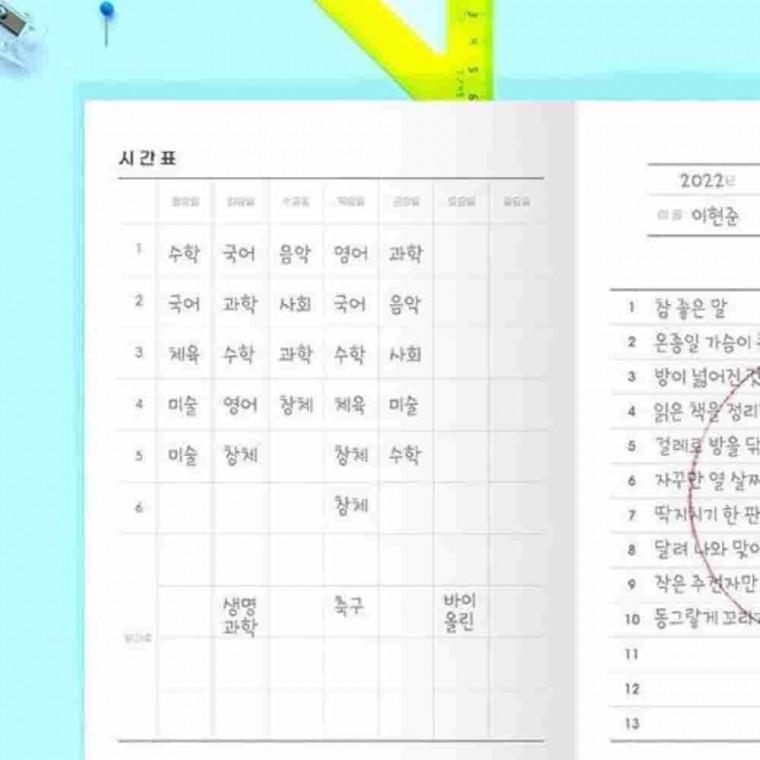 시간표
월요일 화요일 수요일 목요일 금요일 토요일 일요일
1 수학 국어 음악 영어 과학
2 국어 과학 사회 국어 음악
3 체육 수학 과학 수학 사회
4 미술 영어 창체 체육 미술
5 미술 창체 창체 수학
6 창체
생명 과학 축구 바이 올린
2022년
이름 이현준
1 참 좋은 말
2 온종일 가슴이
3 방이 넓어진
4 읽은 책을 정리
5 걸레로 방을
6 자꾸만 열 살
7 딱지치기 한 판
8 달려 나와 맞아
9 작은 주전자만
10 동그랗게
11
12
13
3
4
5
6